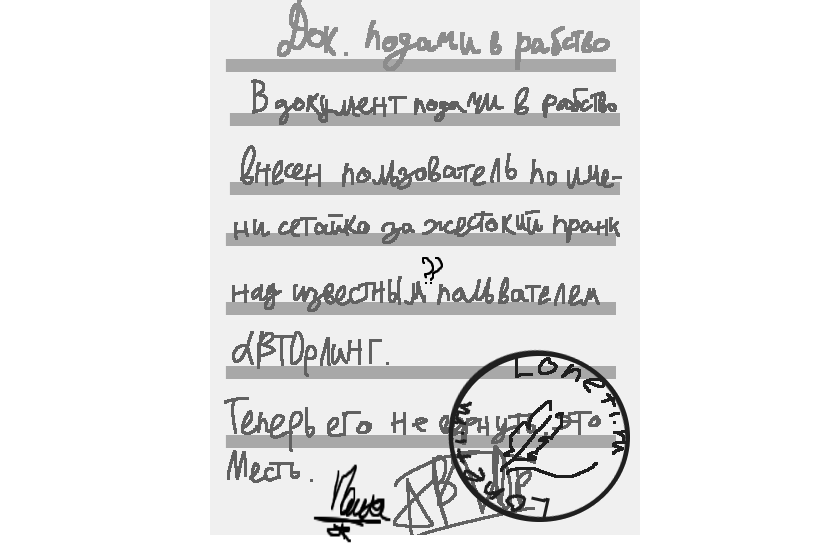 Док. подами в рабство
В документ подачи в рабство
внесен пользователь по име-
ни сетайко за жестокий пранк
??
над известным пользвателем
авторлинг.
Теперь его не вернуть это
Месть.
Loneti.ru
Loneti.ru